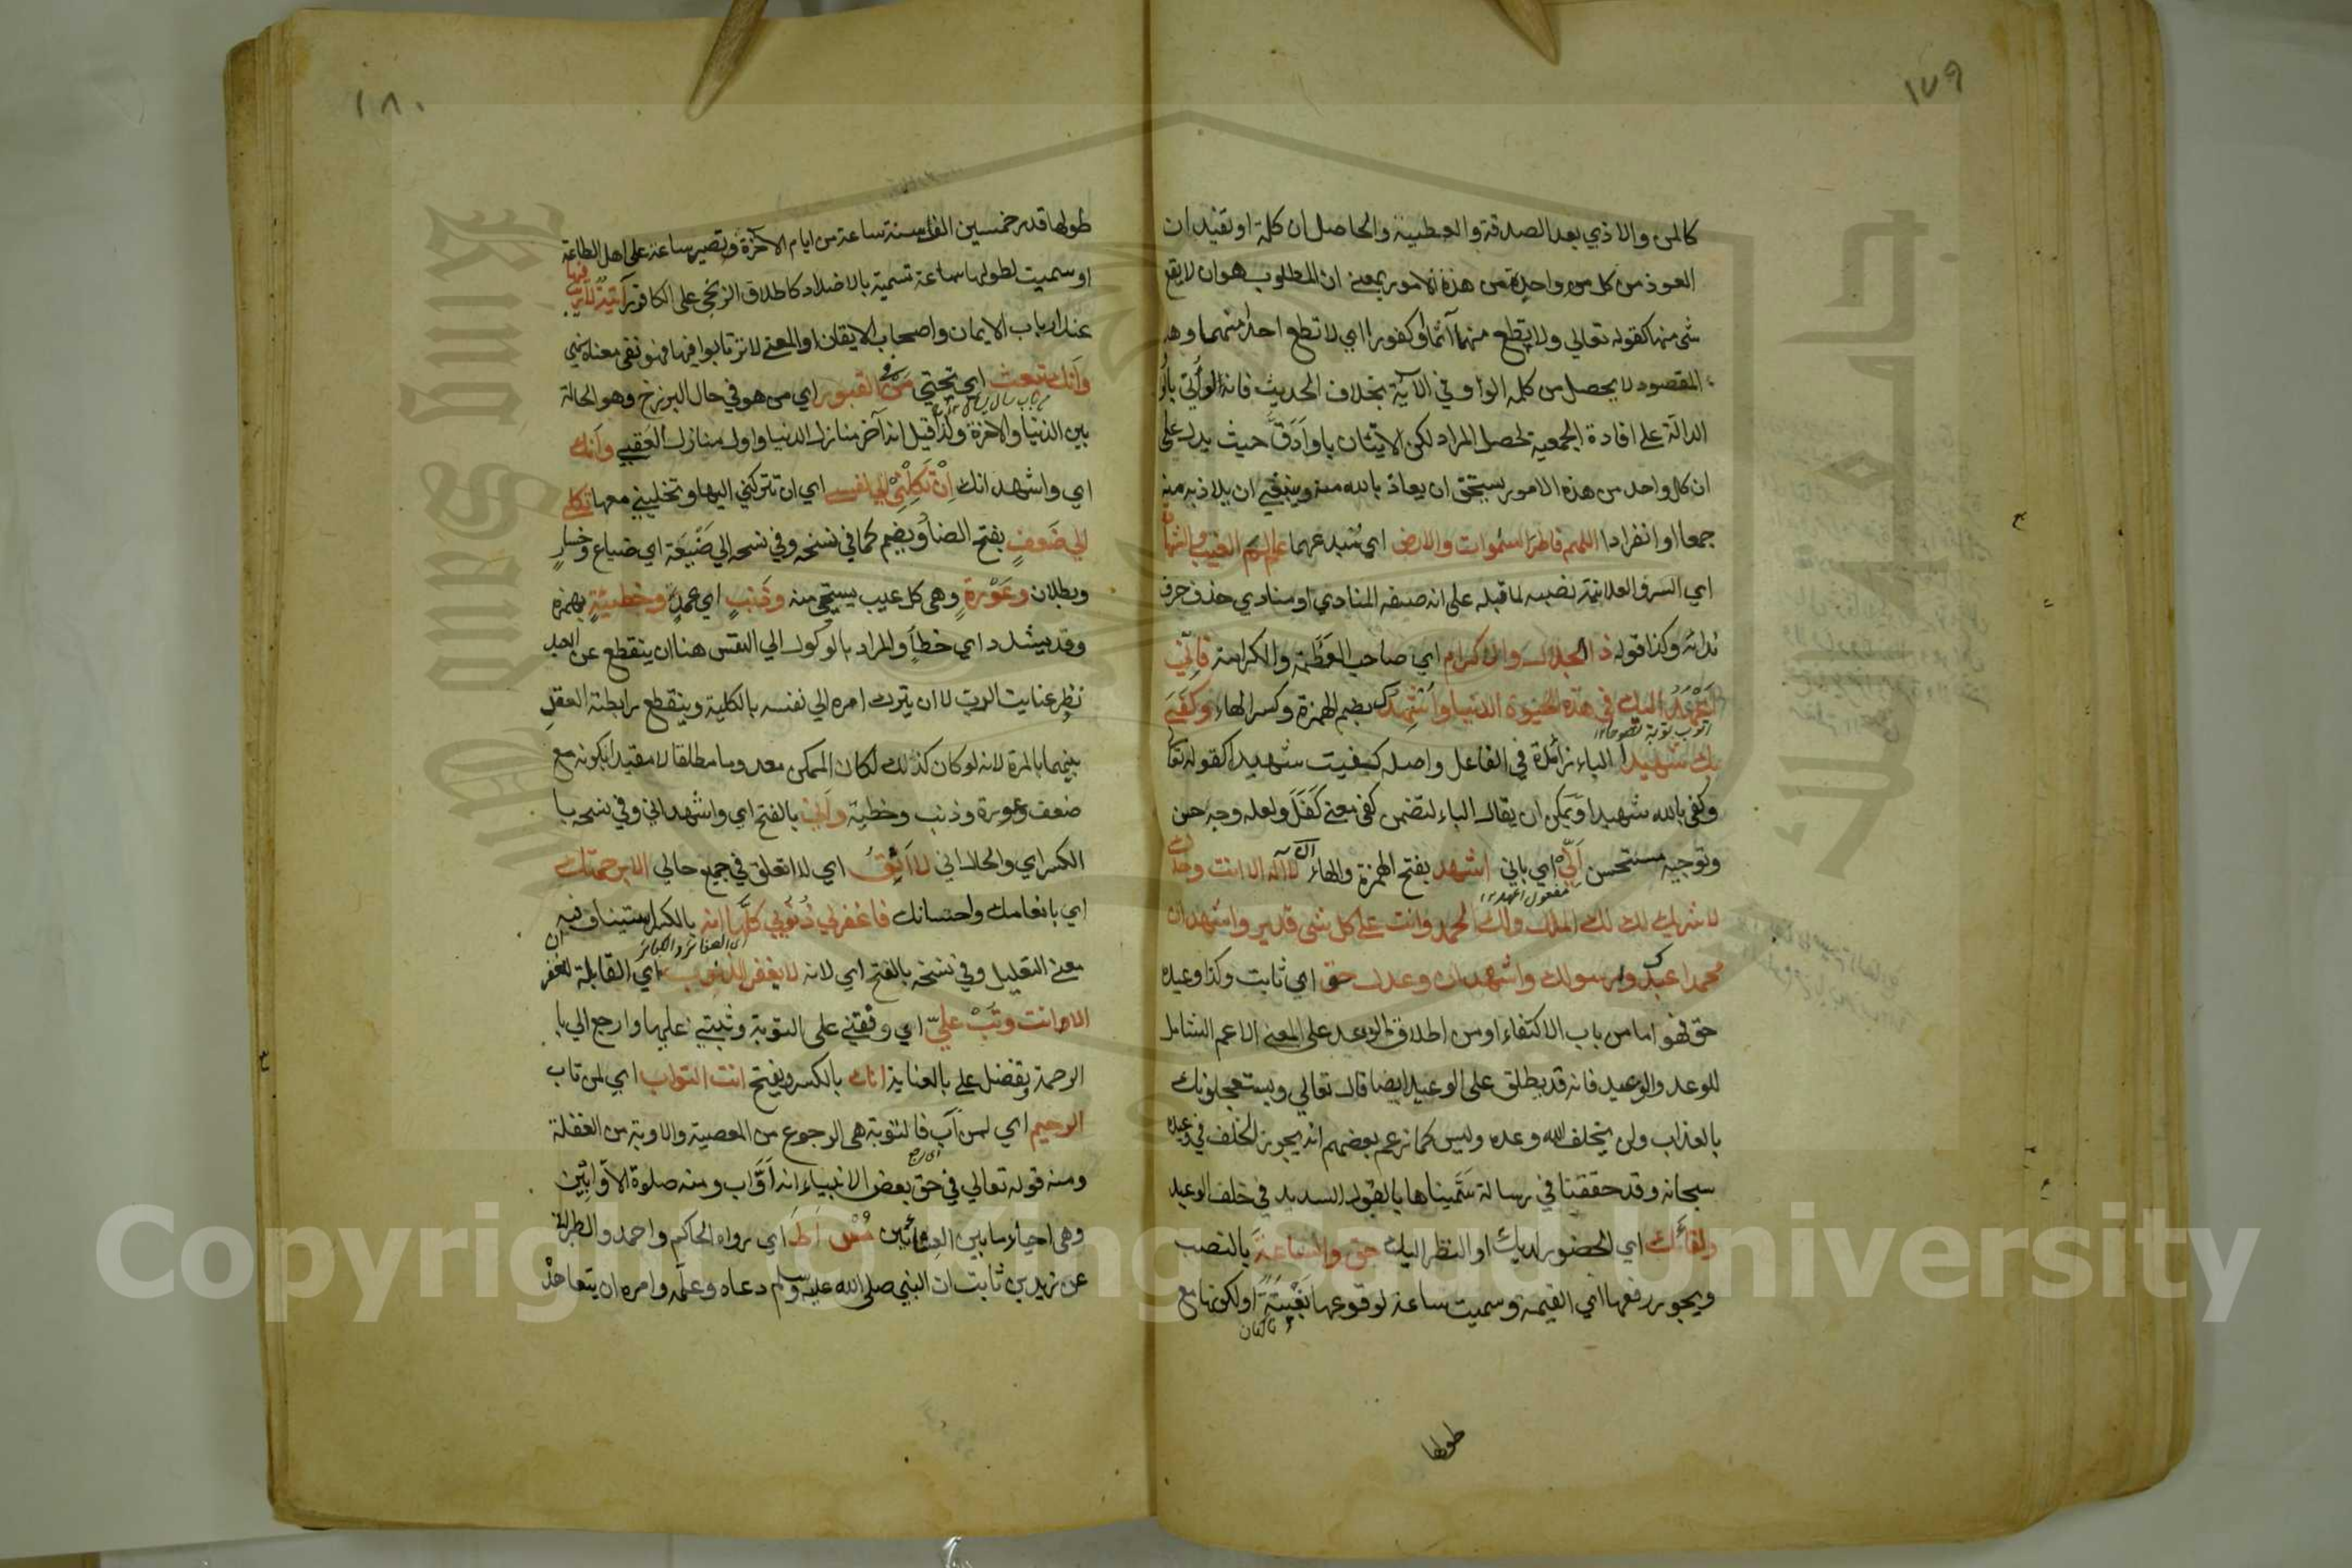 ١٧٩
كالمن والاذي بعد الصدقة والعطية والحاصل ان كلمة او تفيد ان
العوذ من كل من واحدة من هذه الامور بمعنى ان المطلوب هو ان لا يقع
شئ منها كقوله تعالي ولا تطع منهما آثما او كفورا اي لا تطع احدا منهما وهذا
المقصود لا يحصل من كلمة الواو في الآية بخلاف الحديث فانه لو أتي بالواو
الدالة على افادة الجمعية لحصل المراد لكن الاتيان باو أدق حيث يدل على
ان كل واحد من هذه الامور يستحق ان يعاذ بالله منه وينبغي ان يلاذ به منه
جمعا او انفرادا اللهم فاطر السموات والارض اي مبدعهما عالم الغيب والشهادة
اي السر والعلانية نصبه لما قبله على انه صفة المنادي او منادي حذف حرف
ندائه وكذا قوله ذا الجلال والاكرام اي صاحب العظمة والكرامة فاني
اعهد اليك في هذه الحيوة الدنيا واشهدك بضم الهمزة وكسر الهاء وكفى
اتوب توبة نصوحا ١٢
بك شهيدا الباء زائدة في الفاعل واصله كفيت شهيدا كقوله تعا
وكفى بالله شهيدا ويمكن ان يقال الباء لتضمن كفى معنى كفل ولعله وجه حسن
وتوجيه مستحسن أني اي باني اشهد بفتح الهمزة والهاء ان لا اله الا انت وحدك
مفعول اعهد ١٢
لا شريك لك لك الملك ولك الحمد وانت على كل شئ قدير واشهد ان
محمدا عبدك ورسولك واشهد ان وعدك حق اي ثابت وكذا وعيده
حق فهو اما من باب الاكتفاء او من اطلاق الوعد على المعنى الاعم الشامل
للوعد والوعيد فانه قد يطلق على الوعيد ايضا قال تعالي ويستعجلونك
بالعذاب ولن يخلف الله وعده وليس كما زعم بعضهم انه يجوز الخلف في وعيده
سبحانه وقد حققنا في رسالة سميناها بالقول السديد في خلف الوعيد
ولقاءك اي الحضور لديك او النظر اليك حق والساعة بالنصب
ويجوز رفعها اي القيمة وسميت ساعة لوقوعها بغتة او لكونها مع
طولها
١٨٠
طولها قدر خمسين الف سنة ساعة من ايام الآخرة وتصير ساعة على اهل الطاعة
او سميت لطولها ساعة تسمية بالاضداد كاطلاق الزنجي على الكافور آتية لا ريب فيها
عند ارباب الايمان واصحاب الايقان او المعنى لا ترتابوا فيها فهو نفي معناه نهي
وأنك تبعث اي تحيي من في القبور اي من هو في حال البرزخ وهو الحالة
بين الدنيا والاخرة ولذا قيل انه آخر منازل الدنيا واول منازل العقبى وأنك
اي واشهد انك إن تكلني الي نفسي اي ان تتركني اليها وتخليني معها تكلني
الي ضعف بفتح الضاد ويضم كما في نسخة وفي نسخة الي ضيعة اي ضياع وخسار
وبطلان وعورة وهي كل عيب يستحي منه وذنب اي عمد وخطيئة بهمزة
وقد يشدد اي خطأ والمراد بالوكول الي النفس هنا ان ينقطع عن العبد
نظر عنايت الرب لا ان يترك امره الي نفسه بالكلية وينقطع رابطة العقل
بينهما بالمرة لانه لو كان كذلك لكان الممكن معدوما مطلقا لا مقيدا بكونه مع
ضعف وعورة وذنب وخطية وأني بالفتح اي واشهد اني وفي نسخة با
الكسر اي والحال اني لا أثق اي لا اتعلق في جميع حالي الا برحمتك
اي بانعامك واحسانك فاغفر لي ذنوبي كلها انه بالكسر استيناف فيه
اي الصغائر والكبائر
معنى التعليل وفي نسخة بالفتح اي لانه لا يغفر الذنوب اي القابلة لغفر ان
الا انت وتب علي اي وفقني على التوبة وثبتني عليها وارجع الي با
الرحمة وتفضل علي بالعناية انك بالكسر ويفتح انت التواب اي لمن تاب
الرحيم اي لمن آب فالتوبة هي الرجوع من المعصية والاوبة من الغفلة
اي رجع
ومنه قوله تعالي في حق بعض الانبياء انه أواب ومنه صلوة الأوابين
وهي احياء ما بين العشائين مس أ ط اي رواه الحاكم واحمد والطبراني
عن زيد بن ثابت ان النبي صلى الله عليه وسلم دعاه وعلمه وامره ان يتعاهد
Copyright © King Saud University
King Saud University